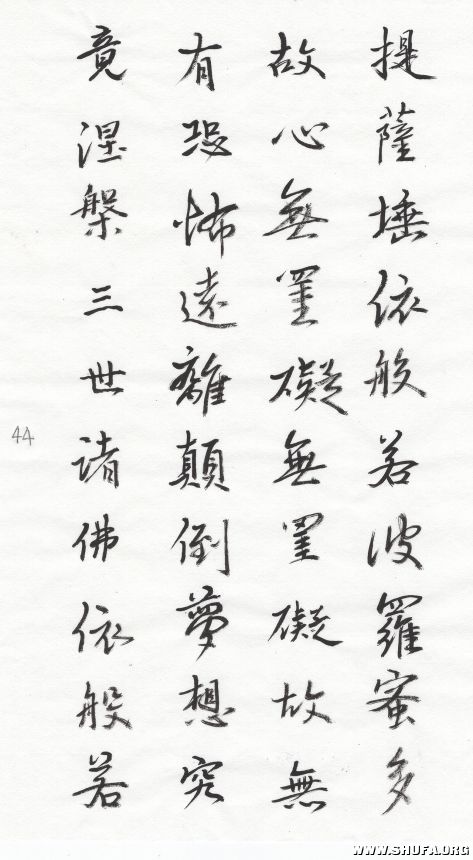 提薩埵依般若波羅蜜多
故心無罣礙無罣礙故無
有恐怖遠離顛倒夢想究
竟涅槃三世諸佛依般若
44
WWW.SHUFA.ORG